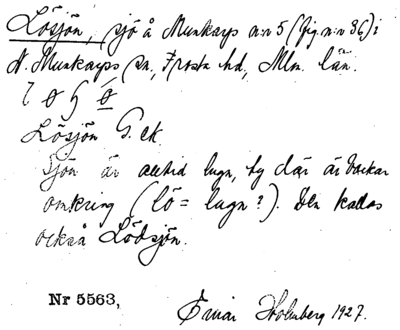 Lösjön, sjö å Munkarps n:r 5 (fig. n:r 36) i
N. Munkarps sn, Frosta hd, Mlm. län.
Lösjön G. ek.
Sjön är alltid lugn, ty där är backar
omkring (lö = lugn?). Den kallas
också Lödsjön.
Nr 5563,
Einar Holmberg 1927.